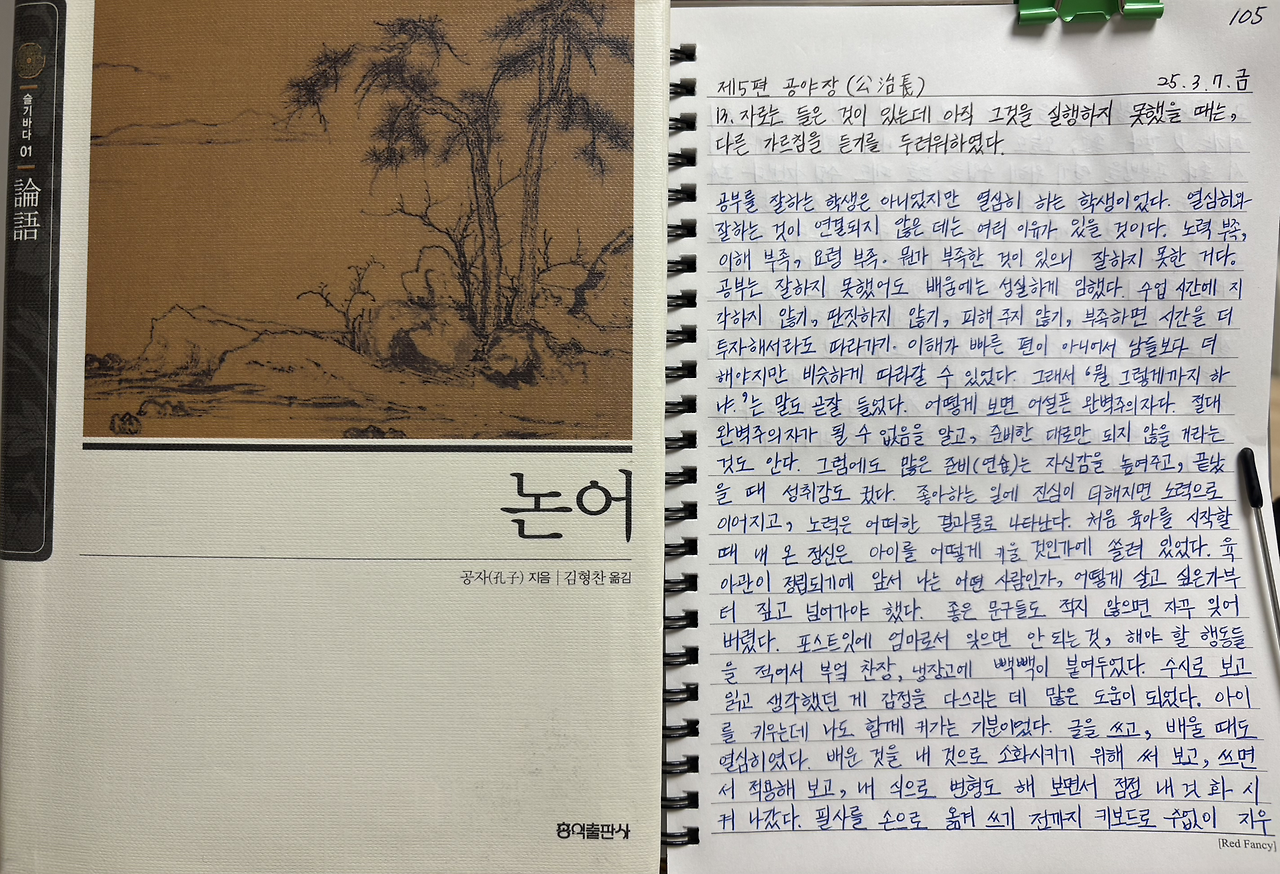 슬기바다 01
論語
논어
공자(孔子) 지음 | 김형찬 옮김
홍익출판사
105
제5편 공야장 (公冶長) 25.3.7.금
13. 자로는 들은 것이 있는데 아직 그것을 실행하지 못했을 때는,
다른 가르침을 듣기를 두려워하였다.
공부를 잘하는 학생은 아니었지만 열심히 하는 학생이었다. 열심히와
잘하는 것이 연결되지 않은 데는 여러 이유가 있을 것이다. 노력 부족,
이해 부족, 요령 부족. 뭔가 부족한 것이 있으니 잘하지 못한 거다.
공부는 잘하지 못했어도 배움에는 성실하게 임했다. 수업 시간에 지
각하지 않기, 딴짓하지 않기, 피해 주지 않기, 부족하면 시간을 더
투자해서라도 따라가기. 이해가 빠른 편이 아니어서 남들보다 더
해야지만 비슷하게 따라갈 수 있었다. 그래서 '뭘 그렇게까지 하
냐.'는 말도 곧잘 들었다. 어떻게 보면 어설픈 완벽주의자다. 절대
완벽주의자가 될 수 없음을 알고, 준비한 대로만 되지 않을 거라는
것도 안다. 그럼에도 많은 준비(연습)는 자신감을 높여주고, 끝났
을 때 성취감도 컸다. 좋아하는 일에 진심이 더해지면 노력으로
이어지고, 노력은 어떠한 결과물로 나타난다. 처음 육아를 시작할
때 내 온 정신은 아이를 어떻게 키울 것인가에 쏠려 있었다. 육
아관이 정립되기에 앞서 나는 어떤 사람인가, 어떻게 살고 싶은가부
터 짚고 넘어가야 했다. 좋은 문구들도 적지 않으면 자꾸 잊어
버렸다. 포스트잇에 엄마로서 잊으면 안 되는 것, 해야 할 행동들
을 적어서 부엌 찬장, 냉장고에 빽빽이 붙여두었다. 수시로 보고
읽고 생각했던 게 감정을 다스리는 데 많은 도움이 되었다. 아이
를 키우는데 나도 함께 커가는 기분이었다. 글을 쓰고, 배울 때도
열심히였다. 배운 것을 내 것으로 소화시키기 위해 써 보고, 쓰면
서 적용해 보고, 내 식으로 변형도 해 보면서 점점 내 것 화 시
켜 나갔다. 필사를 손으로 옮겨 쓰기 전까지 키보드로 수없이 지우
[Red Fancy]